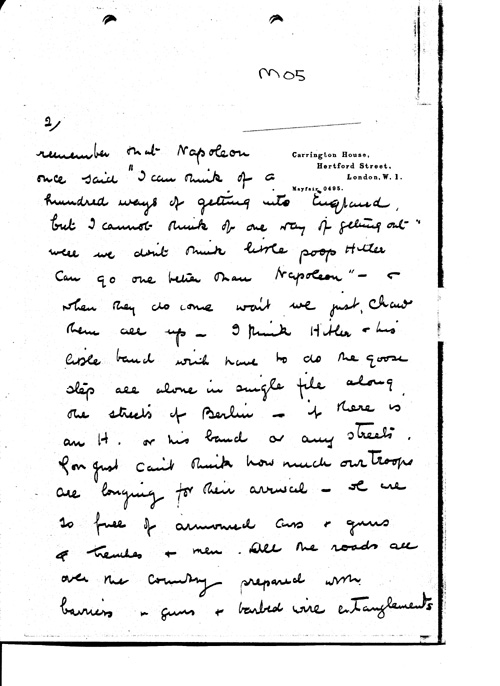 M05
2/
remember that Napoleon
Carrington House,
Hertford Street,
London, W. 1.
Mayfair 0495.
once said "I can think of a
hundred ways of getting into England,
but I cannot think of one way of getting out"
well we don't think little poop Hitler
can go one better than Napoleon" – &
when they do come won't we just chaw
them all up – I think Hitler & his
little band will have to do the goose
step all alone in single file along
the streets of Berlin – if there is
an H. or his band or any streets.
You just can't think how much our Troops
are longing for their arrival – we are
so full of armoured cars & guns
& trenches & men. All the roads all
over the country prepared with
barriers & guns & barbed wire entanglements